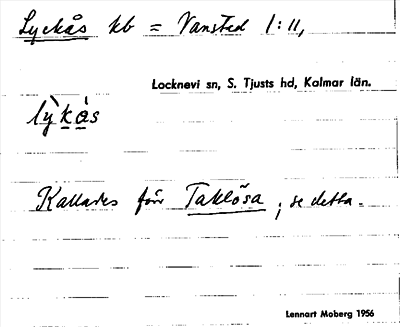 Lyckås kb = Vansted 1:11,
Locknevi sn, S. Tjusts hd, Kalmar län.
lỳkås
Kallades förr Taklösa ; se detta.
Lennart Moberg 1956